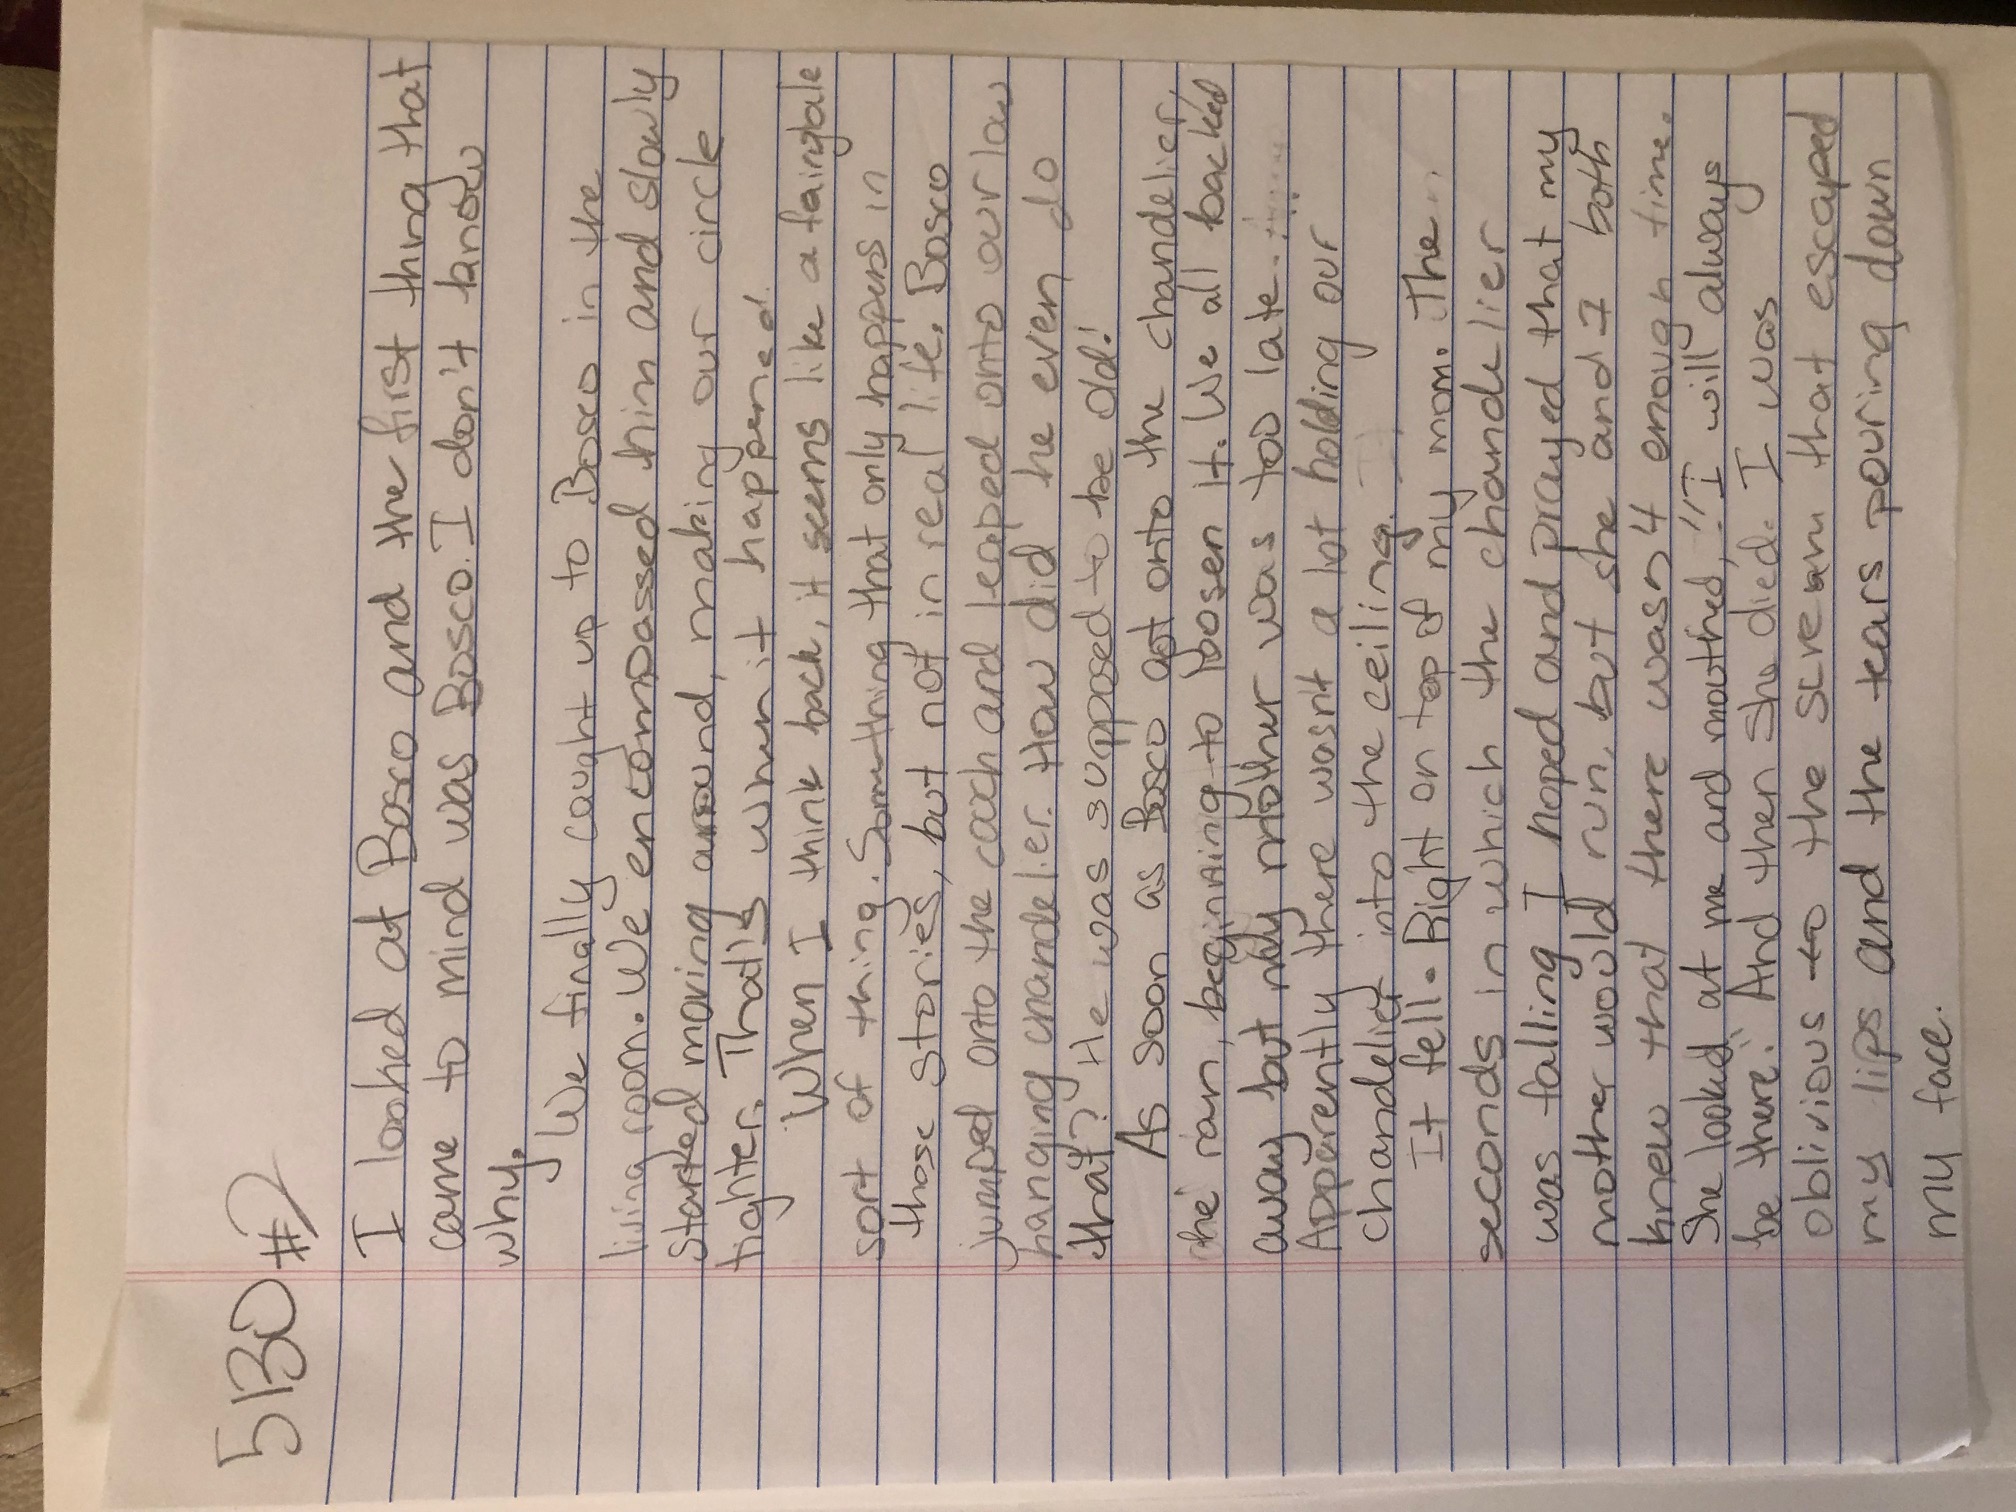 5130 #2
I looked at Bosco and the first thing that
came to mind was Bosco. I don't know
why.
We finally caught up to Bosco in the
living room. We encompassed him and slowly
started moving around, making our circle
tighter. That's when it happened.
When I think back, it seems like a fairytale
sort of thing. Something that only happens in
those stories, but not in real life. Bosco
jumped onto the couch and leaped onto our low
hanging chandelier. How did he even do
that? He was supposed to be old!
As soon as Bosco got onto the chandelier,
he ran, beginning to loosen it. We all backed
away but my mother was too late.
Apparently there wasn't a lot holding our
chandelier into the ceiling.
It fell. Right on top of my mom. The
seconds in which the chandelier
was falling I hoped and prayed that my
mother would run, but she and I both
knew that there wasn't enough time.
She looked at me and mouthed, "I will always
be there." And then she died. I was
oblivious to the scream that escaped
my lips and the tears pouring down
my face.